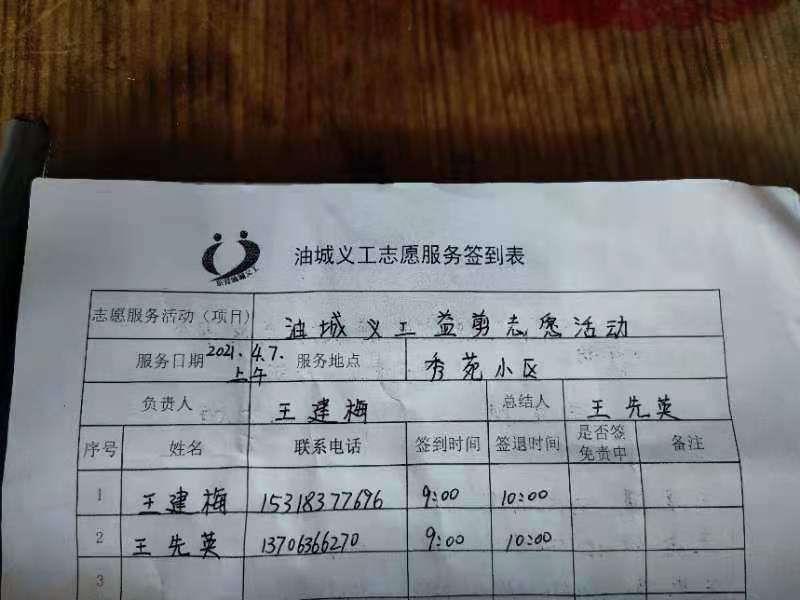 油城义工志愿服务签到表
志愿服务活动（项目） 油城义工益剪志愿活动
服务日期 2021.4.7.上午 服务地点 秀苑小区
负责人 王建梅 总结人 王先英
序号 姓名 联系电话 签到时间 签退时间 是否签免责申 备注
1 王建梅 15318377696 9:00 10:00
2 王先英 13706366270 9:00 10:00
3